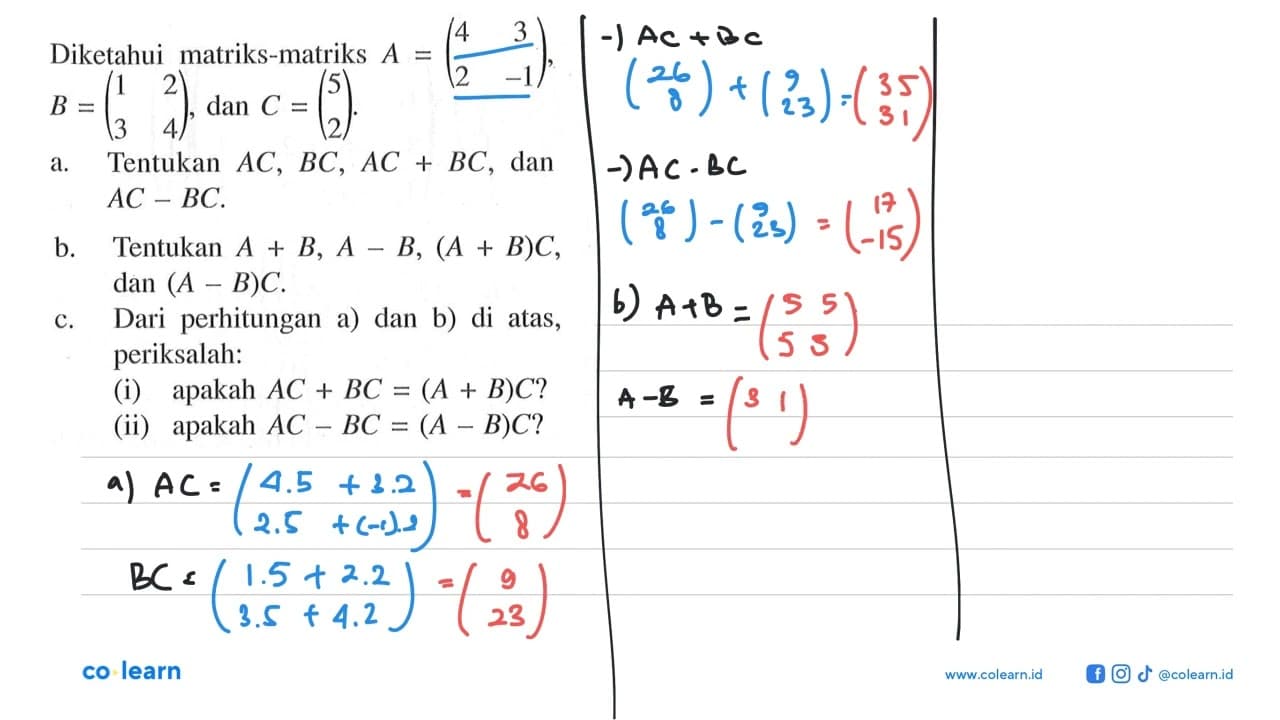 Diketahui matriks-matriks A = (4 3
2 –1),
B = (1 2
3 4), dan C = (5
2).
a. Tentukan AC, BC, AC + BC, dan
AC – BC.
b. Tentukan A + B, A – B, (A + B)C,
dan (A – B)C.
c. Dari perhitungan a) dan b) di atas,
periksalah:
(i) apakah AC + BC = (A + B)C?
(ii) apakah AC – BC = (A – B)C?
a) AC = (4.5 + 3.2
2.5 + (-1).2) = (26
8)
BC = (1.5 + 2.2
3.5 + 4.2) = (9
23)
-) AC + BC
(26
8) + (9
23) = (35
31)
-) AC - BC
(26
8) - (9
23) = (17
-15)
b) A+B = (5 5
5 3)
A-B = (3 1)
co·learn
www.colearn.id
@colearn.id